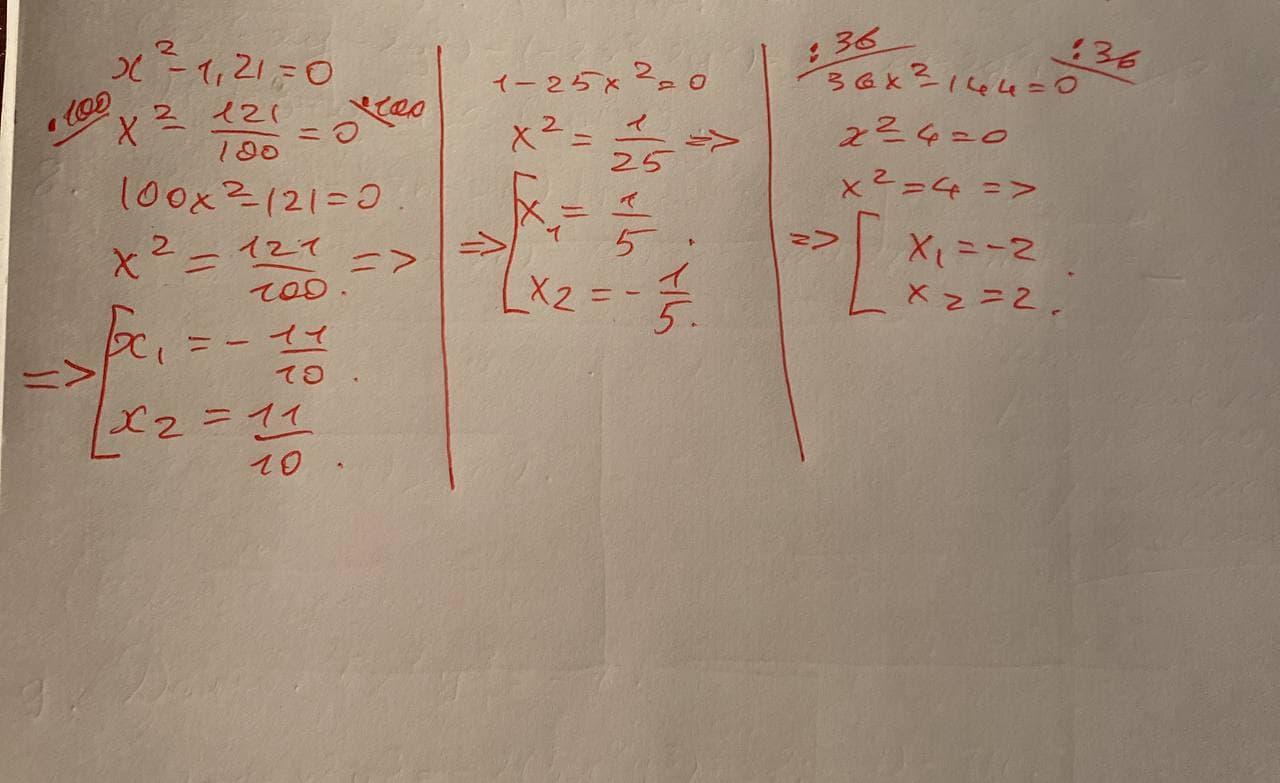 x² - 1,21 = 0
·100 x² - 121/100 = 0 ·100
100x² - 121 = 0
x² = 121/100 =>
=> [ x₁ = - 11/10 .
x₂ = 11/10 .
1 - 25x² = 0
x² = 1/25 =>
=> [ x₁ = 1/5 .
x₂ = - 1/5 .
:36 :36
36x² - 144 = 0
x² - 4 = 0
x² = 4 =>
=> [ x₁ = -2
x₂ = 2 .